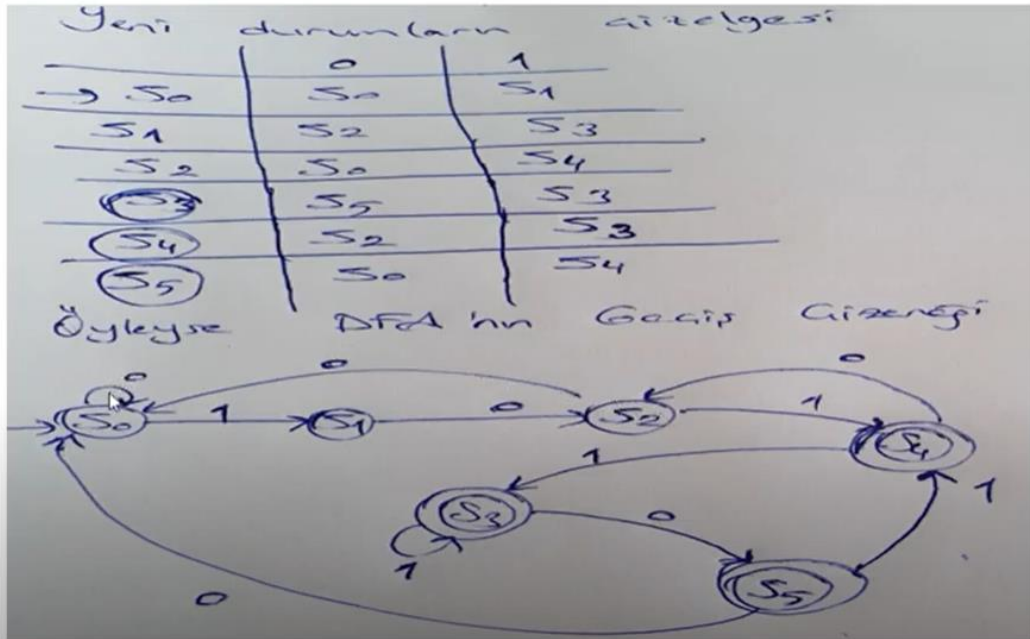 Yeni durumların çizelgesi
0 1
→ S0 S0 S1
S1 S2 S3
S2 S0 S4
S3 S5 S3
S4 S2 S3
S5 S0 S4
Öyleyse DFA'nın Geçiş Çizeneği
0 0 0
S0 1 S1 0 S2 1 S4
1
S3 0 1
1 S5
0